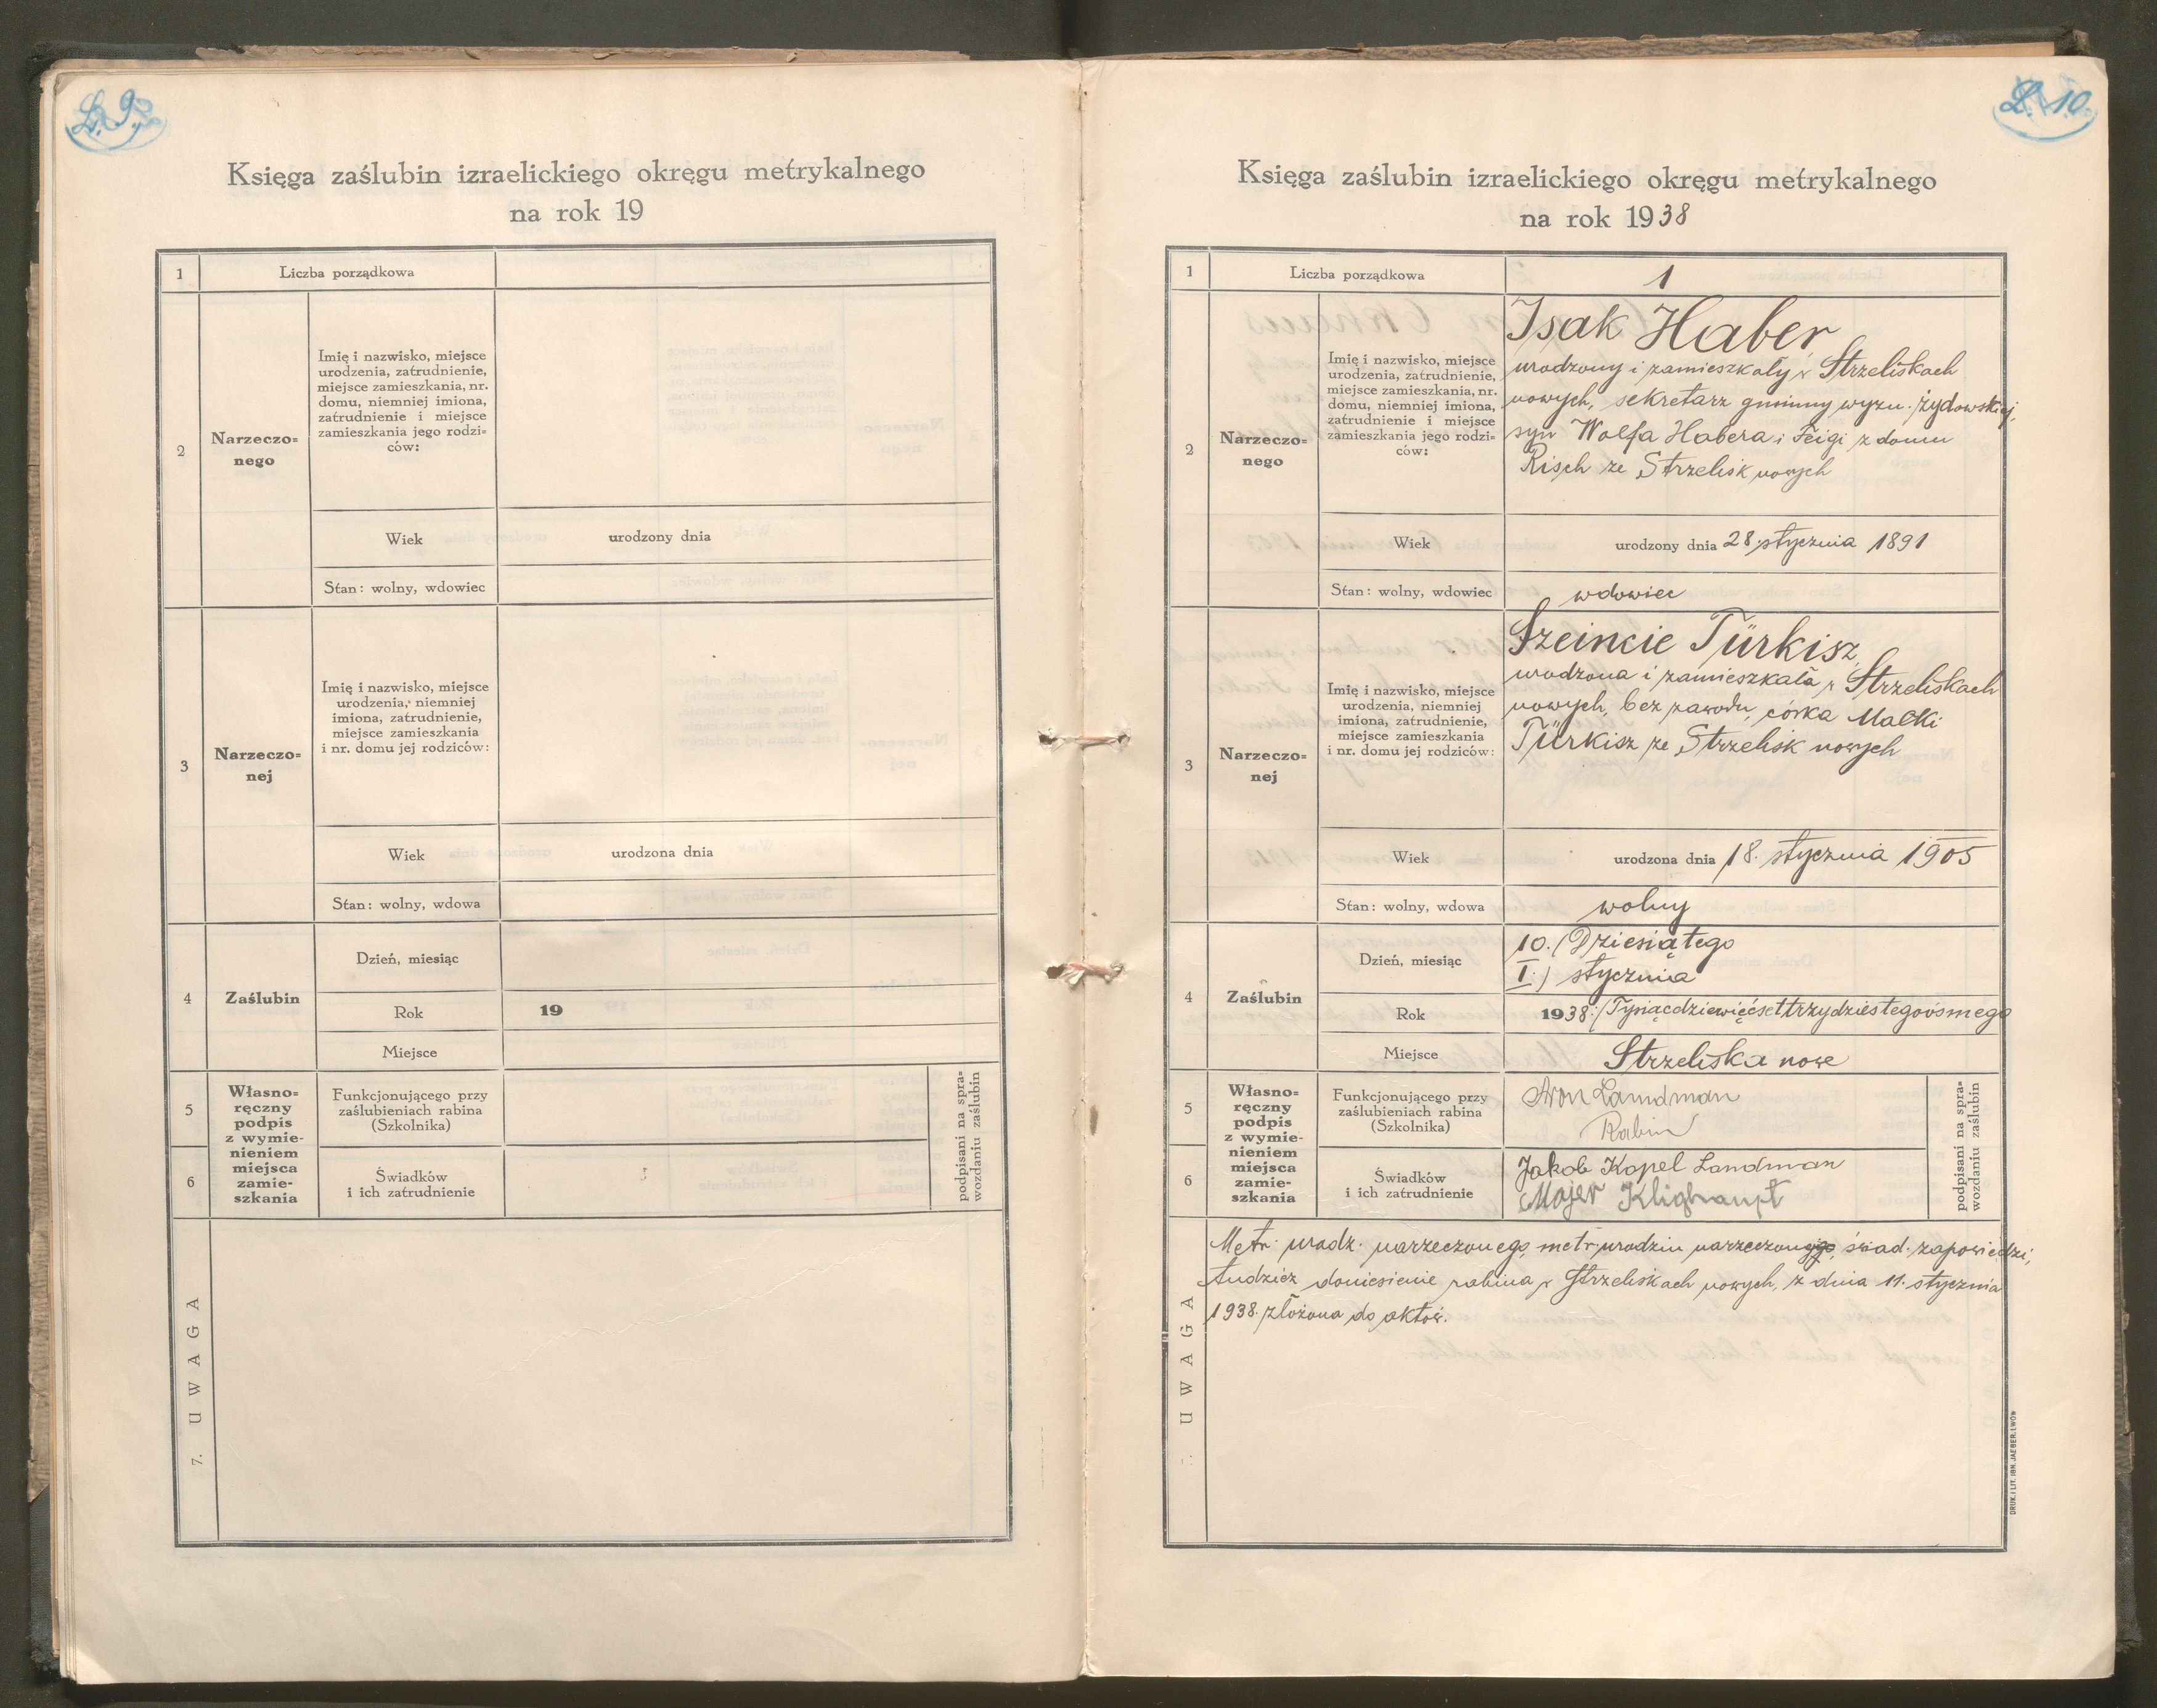 L. 9.
Księga zaślubin izraelickiego okręgu metrykalnego
na rok 19
1
Liczba porządkowa
2
Narzeczo=
nego
Imię i nazwisko, miejsce
urodzenia, zatrudnienie,
miejsce zamieszkania, nr.
domu, niemniej imiona,
zatrudnienie i miejsce
zamieszkania jego rodzi=
ców:
Wiek
urodzony dnia
Stan: wolny, wdowiec
3
Narzeczo=
nej
Imię i nazwisko, miejsce
urodzenia, niemniej
imiona, zatrudnienie,
miejsce zamieszkania
i nr. domu jej rodziców:
Wiek
urodzona dnia
Stan: wolny, wdowa
4
Zaślubin
Dzień, miesiąc
Rok
19
Miejsce
5
6
Własno=
ręczny
podpis
z wymie-
nieniem
miejsca
zamie-
szkania
Funkcjonującego przy
zaślubieniach rabina
(Szkolnika)
Świadków
i ich zatrudnienie
podpisani na spra=
wozdaniu zaślubin
7. UWAGA
L. 10.
Księga zaślubin izraelickiego okręgu metrykalnego
na rok 1938
1
Liczba porządkowa
1
2
Narzeczo=
nego
Imię i nazwisko, miejsce
urodzenia, zatrudnienie,
miejsce zamieszkania, nr.
domu, niemniej imiona,
zatrudnienie i miejsce
zamieszkania jego rodzi=
ców:
Isak Haber,
urodzony i zamieszkały w Strzeliskach
nowych, sekretarz gminy wyzn. żydowskiej,
syn Wolfa Habera i Feigi z domu
Risch ze Strzelisk nowych
Wiek
urodzony dnia 28. stycznia 1891
Stan: wolny, wdowiec
wdowiec
3
Narzeczo=
nej
Imię i nazwisko, miejsce
urodzenia, niemniej
imiona, zatrudnienie,
miejsce zamieszkania
i nr. domu jej rodziców:
Szeincie Türkisz,
urodzona i zamieszkała w Strzeliskach
nowych, bez zawodu, córka Malki
Türkisz ze Strzelisk nowych
Wiek
urodzona dnia 18. stycznia 1905
Stan: wolny, wdowa
wolny
4
Zaślubin
Dzień, miesiąc
10./Dziesiątego
I./ stycznia
Rok
1938./Tysiącdziewięćsettrzydziestegoósmego
Miejsce
Strzeliska nowe
5
6
Własno=
ręczny
podpis
z wymie-
nieniem
miejsca
zamie-
szkania
Funkcjonującego przy
zaślubieniach rabina
(Szkolnika)
Aron Landman
Rabin
Świadków
i ich zatrudnienie
Jakob Kopel Landman
Majer
podpisani na spra=
wozdaniu zaślubin
UWAGA
Metr. urodz. narzeczonego, metr. urodzin narzeczonej, świad. zapowiedzi,
tudzież doniesienie rabina w Strzeliskach nowych, z dnia 11. stycznia
1938. złożona do aktów.
DRUK. I LIT. IGN. JAEGER, LWÓW